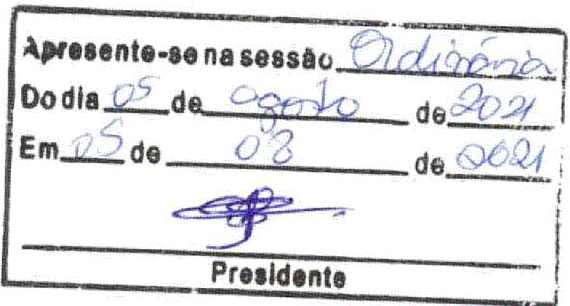 Apresente-se na sessão Ordinária
Do dia 05 de agosto de 2021
Em 05 de 08 de 2021
Presidente